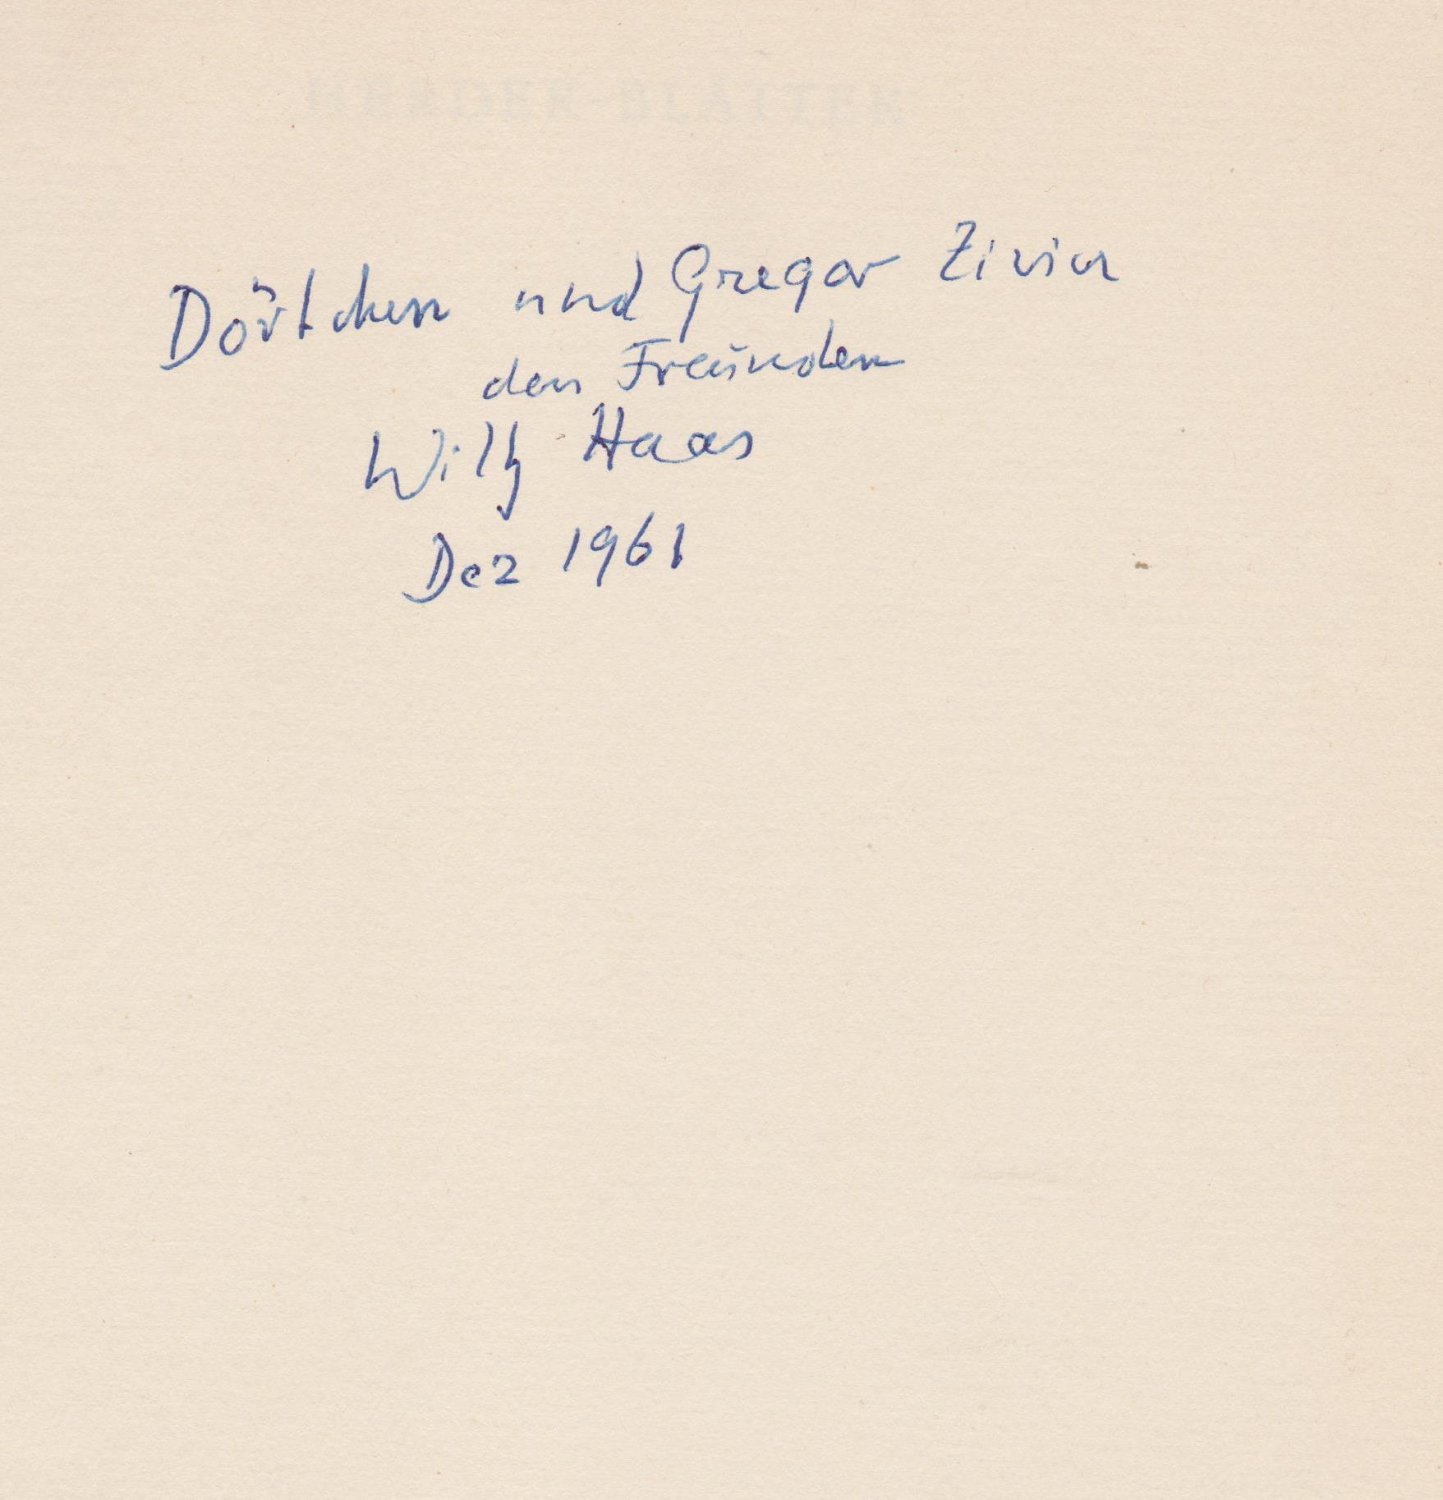 Dörtchen und Gregor Zivier
den Freunden
Willy Haas
Dez 1961